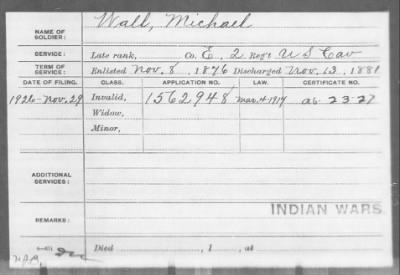 Wall, Michael
NAME OF SOLDIER:
SERVICE: Late rank, Co. E, 2 Reg't U S Cav
TERM OF SERVICE: Enlisted Nov. 8, 1876 Discharged Nov. 13, 1881
DATE OF FILING. CLASS. APPLICATION NO. LAW. CERTIFICATE NO.
1926-Nov. 29 Invalid, 1562948 Mar. 4-1917
Widow,
Minor,
ADDITIONAL SERVICES:
INDIAN WARS
REMARKS:
Died , 1 , at